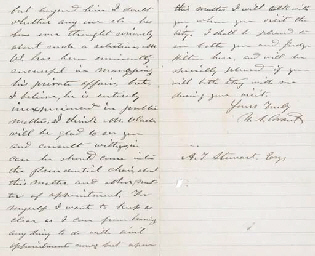 but beyond him I doubt
whether any one else has
has one thought seriously
about such a selection. Mr
W. has been eminently
successful in managing
his private affairs but
I believe he is entirely
inexperienced in public
matters. I think Mr. Wade
will be glad to see you
and consult with you in
case he should come into
the Presidential chair about
this matter and other
of appointment. For
myself I want to keep
clear as I can from having
anything to do with civil
appointments
this matter I will talk with
you when you visit the
city. I shall be pleased to
see both you and Judge
Hilton here, and will be
specially pleased if you
will both stay with me
during your visit.
Yours Truly
U. S. Grant
A. T. Stewart, Esq.